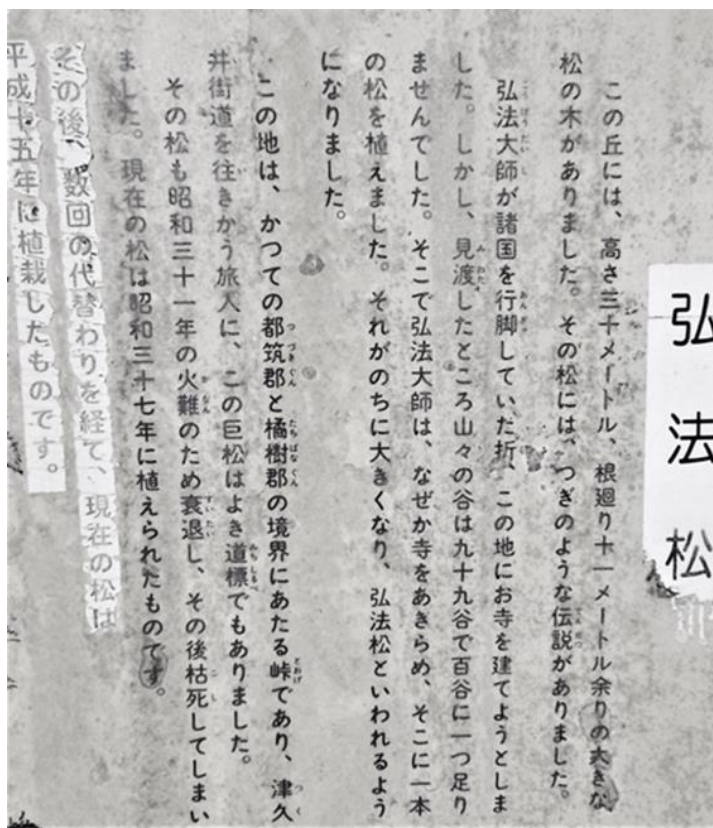 弘法松
この丘には、高さ三十メートル、根廻り十一メートル余りの大きな
松の木がありました。その松には、つぎのような伝説がありました。
弘法大師が諸国を行脚していた折、この地にお寺を建てようとしま
した。しかし、見渡したところ山々の谷は九十九谷で百谷に一つ足り
ませんでした。そこで弘法大師は、なぜか寺をあきらめ、そこに一本
の松を植えました。それがのちに大きくなり、弘法松といわれるよう
になりました。
この地は、かつての都筑郡と橘樹郡の境界にあたる峠であり、津久
井街道を往きかう旅人に、この巨松はよき道標でもありました。
その松も昭和三十一年の火難のため衰退し、その後枯死してしまい
ました。現在の松は昭和三十七年に植えられたものです。
その後、数回の代替わりを経て、現在の松は
平成十五年に植栽したものです。